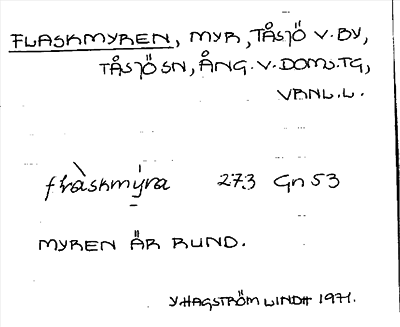 FLASKMYREN, MYR, TÅSJÖ V. BY,
TÅSJÖ SN, ÅNG. V. DOMS.TG,
VBNL.L.
flàskmýra 273 Gn 53
MYREN ÄR RUND.
Y.HAGSTRÖM LINDH 1971.